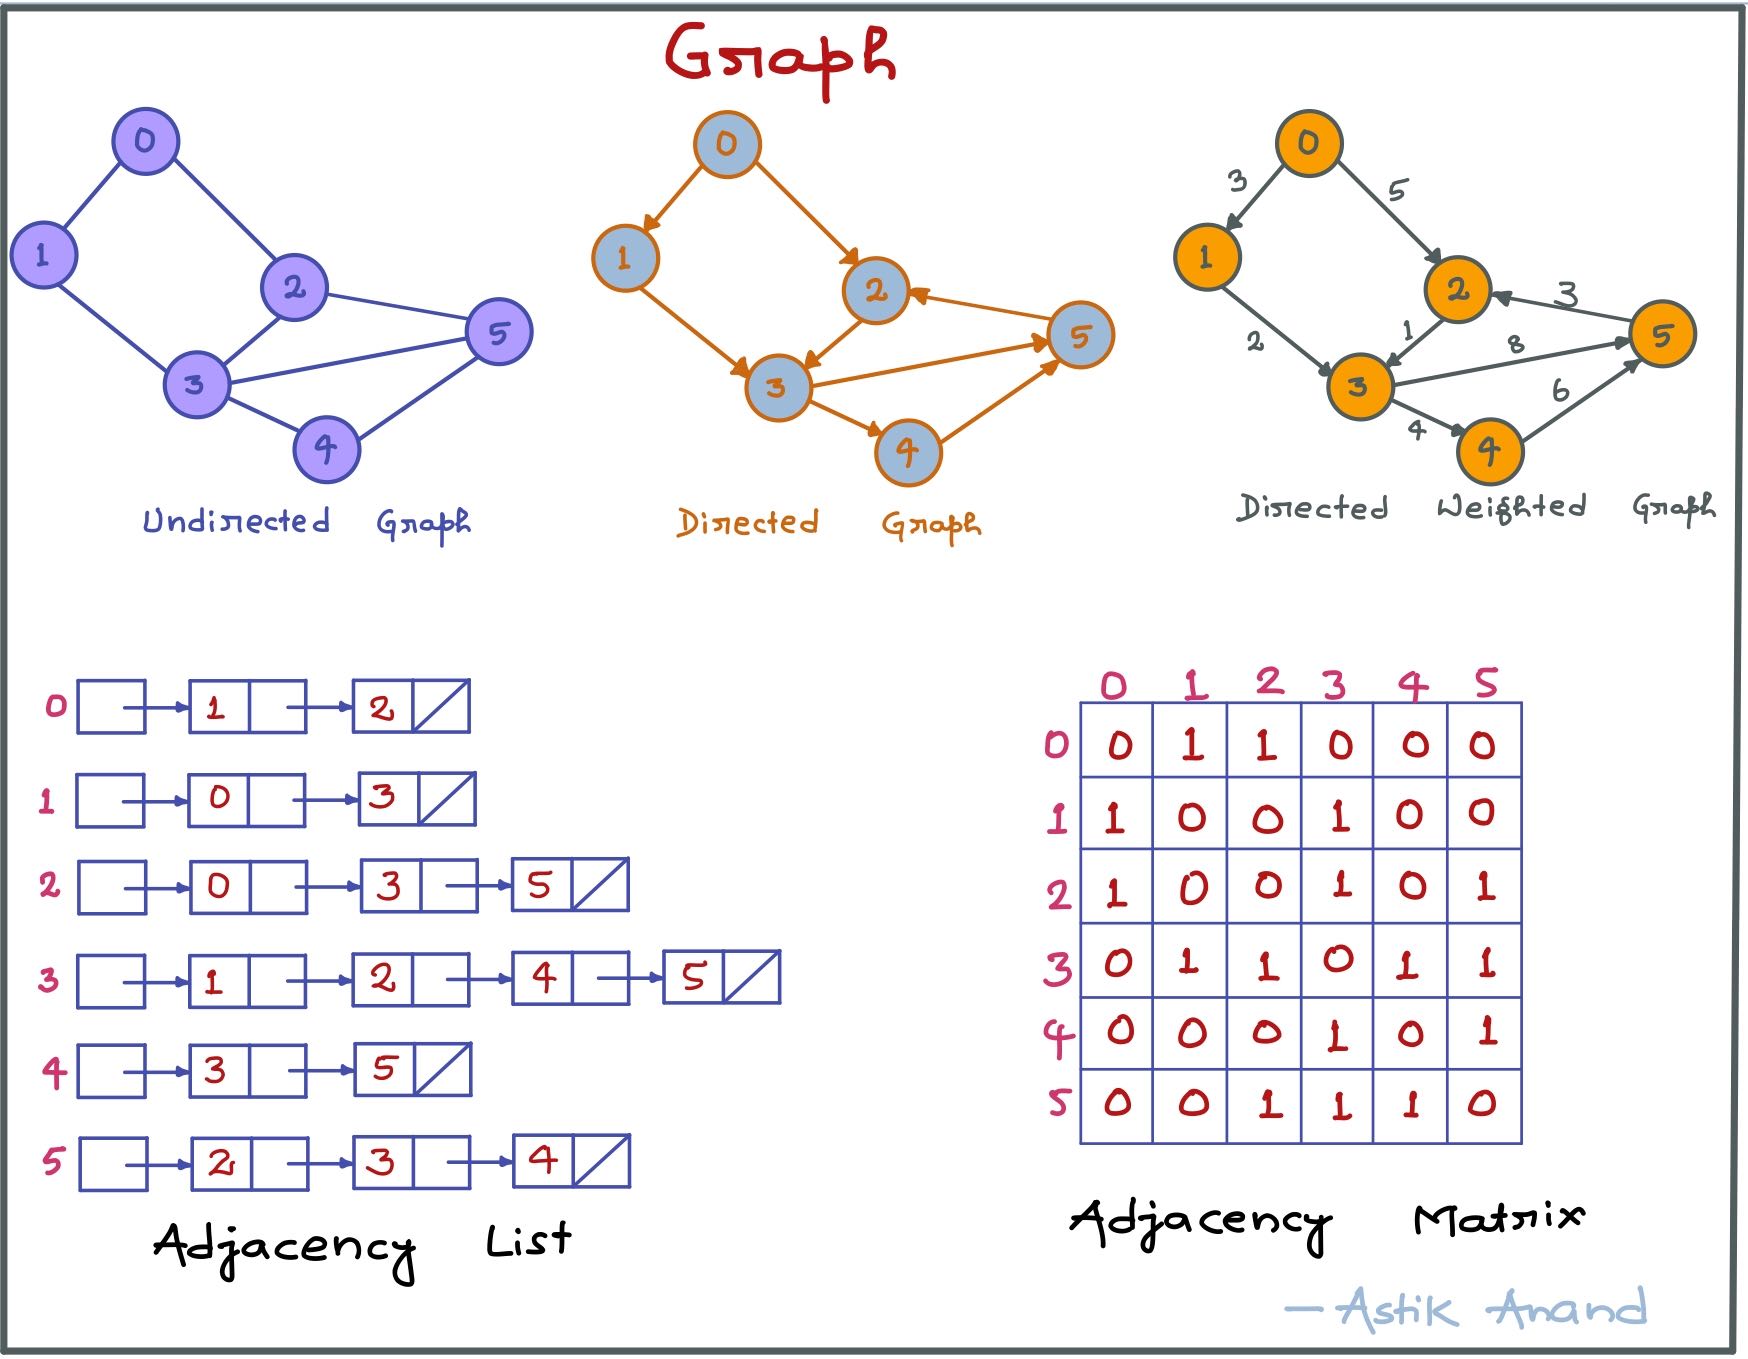 Graph
0
1
2
3
4
5
Undirected Graph
0
1
2
3
4
5
Directed Graph
0
3
5
1
2
3
5
2
1
8
3
6
4
4
Directed Weighted Graph
0 1 2
1 0 3
2 0 3 5
3 1 2 4 5
4 3 5
5 2 3 4
Adjacency List
0 1 2 3 4 5
0 0 1 1 0 0 0
1 1 0 0 1 0 0
2 1 0 0 1 0 1
3 0 1 1 0 1 1
4 0 0 0 1 0 1
5 0 0 1 1 1 0
Adjacency Matrix
— Astik Anand